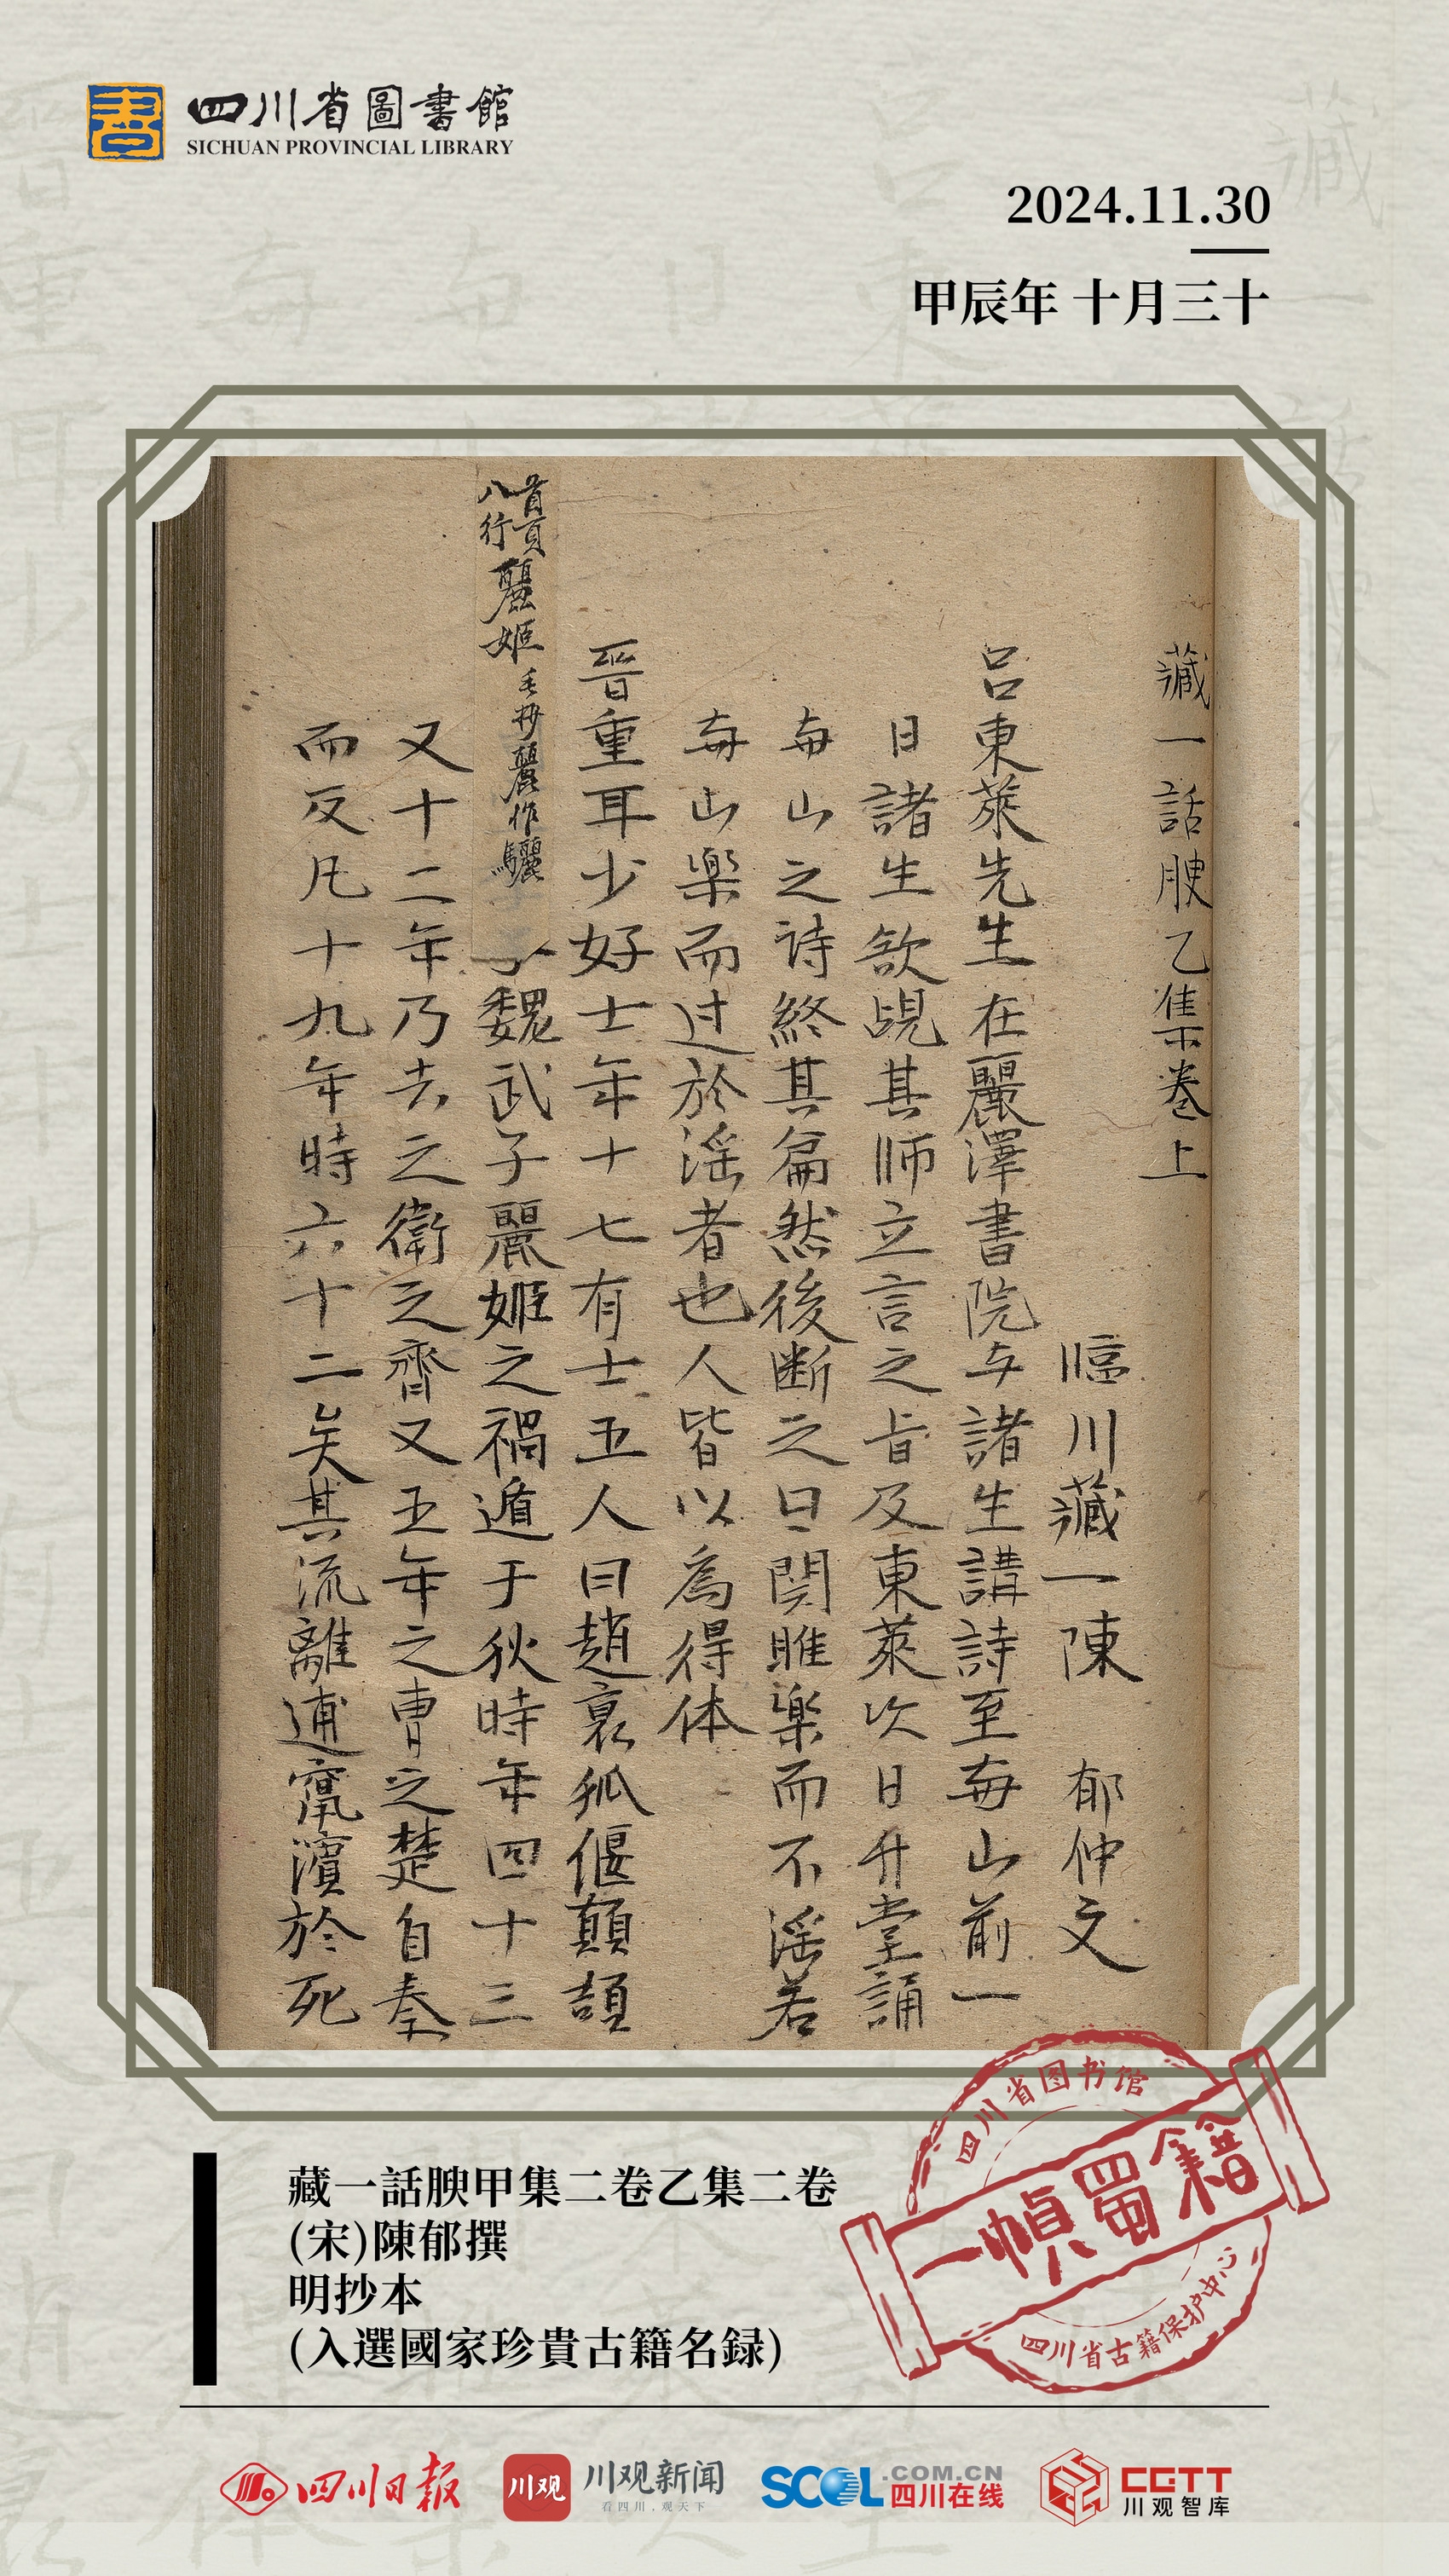 四川省圖書館
SICHUAN PROVINCIAL LIBRARY
2024.11.30
甲辰年 十月三十
藏一話腴乙集卷上
臨川藏一陳 郁仲文
呂東萊先生在麗澤書院与諸生講詩至每山前一
日諸生欲覘其师立言之旨及東萊次日升堂誦
每山之诗終其篇然後断之曰関雎楽而不滛若
每山楽而过於滛者也人皆以為得体
晉重耳少好士年十七有士五人曰趙衰狐偃顛頡
首頁
八行
麗姬
毛抄麗作驪
魏武子麗姬之禍遁于狄時年四十三
又十二年乃去之衛之齊又五年之曹之楚自秦
而反凡十九年時六十二矣其流離逋竄濵於死
四川省图书馆
一幀蜀籍
四川省古籍保护中心
藏一話腴甲集二卷乙集二卷
(宋)陳郁撰
明抄本
(入選國家珍貴古籍名録)
四川日报
川观
川观新闻
看四川，观天下
SCOL.COM.CN
四川在线
CGTT
川观智库